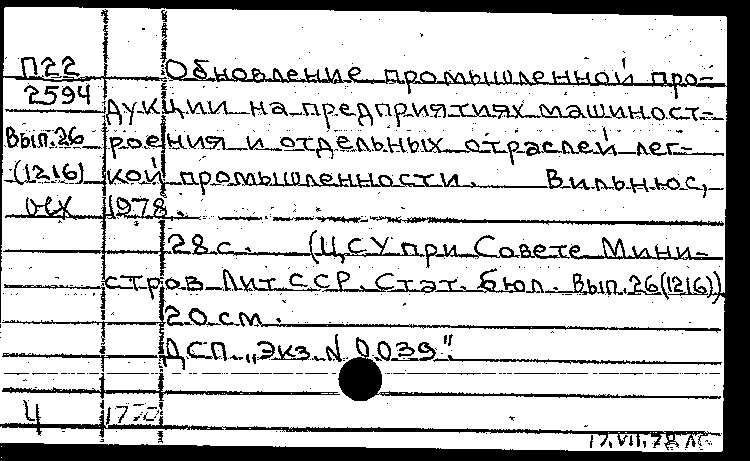 П22 Обновление промышленной про-
2594 дукции на предприятиях машиност-
Вып.26 роения и отдельных отраслей лег-
(1216) кой промышленности. Вильнюс,
1978.
28с. (ЦСУ при Совете Мини-
стров Лит.ССР. Стат. бюл. Вып.26(1216))
20см.
ДСП „Экз. N 0039".
4
17.VII.78